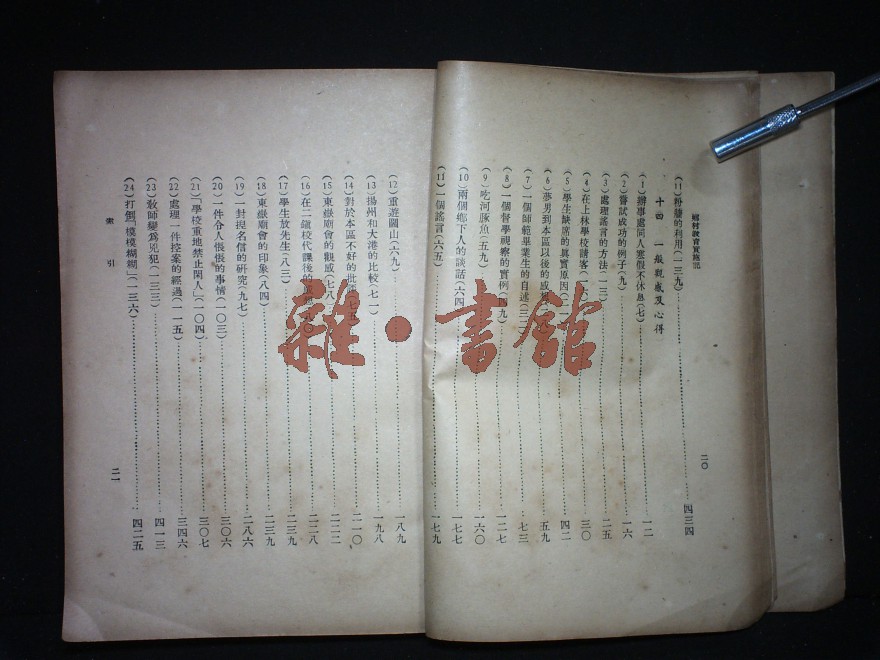 鄉村教育實施記
二〇
(11)粉籠的利用(一三九)……四三四
十四 一般觀感及心得
(1)辦事處同人寒假不休息(七)……一二
(2)嘗試成功的例子(九)……一六
(3)處理謠言的方法(一三)……二五
(4)在上林學校請客(一……三〇
(5)學生缺席的眞實原因(二……四二
(6)夢男到本區以後的感……五九
(7)一個師範畢業生的自述(三……七三
(8)一個督學視察的實例(四九)……一二七
(9)吃河豚魚(五九)……一六〇
(10)兩個鄉下人的談話(六四)……一七七
(11)一個謠言(六五)……一七九
(12)重遊圌山(六九)……一八九
(13)揚州和大港的比較(七一)……一九八
(14)對於本區不好的批評(七五)……二一〇
(15)東嶽廟會的觀感(七八)……二二二
(16)在二鎭校代課後的……〇)……二二八
(17)學生放先生(八三)……二三九
(18)東嶽廟會的印象(八四)……二三九
(19)一封揑名信的研究(九七)……二八六
(20)一件令人悵悵的事情(一〇三)……三〇六
(21)「學校重地禁止閑人」(一〇四)……三〇七
(22)處理一件控案的經過(一一五)……三四六
(23)敎師變爲兇犯(一三三)……四一三
(24)打倒「模模糊糊」(一三六)……四二五
索引
二一
雜·書館